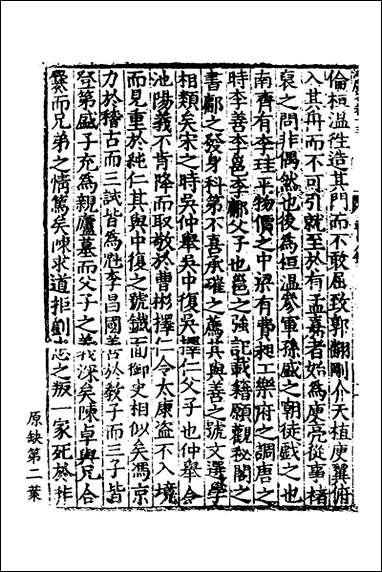 倫桓溫徃造其門而不敢屈致郭翻剛介天植庾翼俯
入其舟而不可引就至於有孟嘉者始為庾亮從事褚
裒之問非偶然也後為桓溫參軍孫盛之朝徒戲之也
南齊有李珪平物價之中梁有費昶工樂府之調唐之
時李善李邕李鄘父子也邕之強記載籍願觀秘閣之
書鄘之發身科第不喜承璀之薦其與善之號文選學
相類矣宋之時吳仲舉吳中復吳擇仁父子也仲舉令
池陽義不肯降而取敬於曹彬擇仁令太康盜不入境
而見重於純仁其與中復之號鐵面御史相似矣馮京
力於稽古而三試皆為魁李昌國善於教子而三子皆
登第盛子充為親廬墓而父子之義深矣陳卓與兄合
㸑而兄弟之情篤矣陳求道拒劉忠之叛一家死於非
原缺第二葉